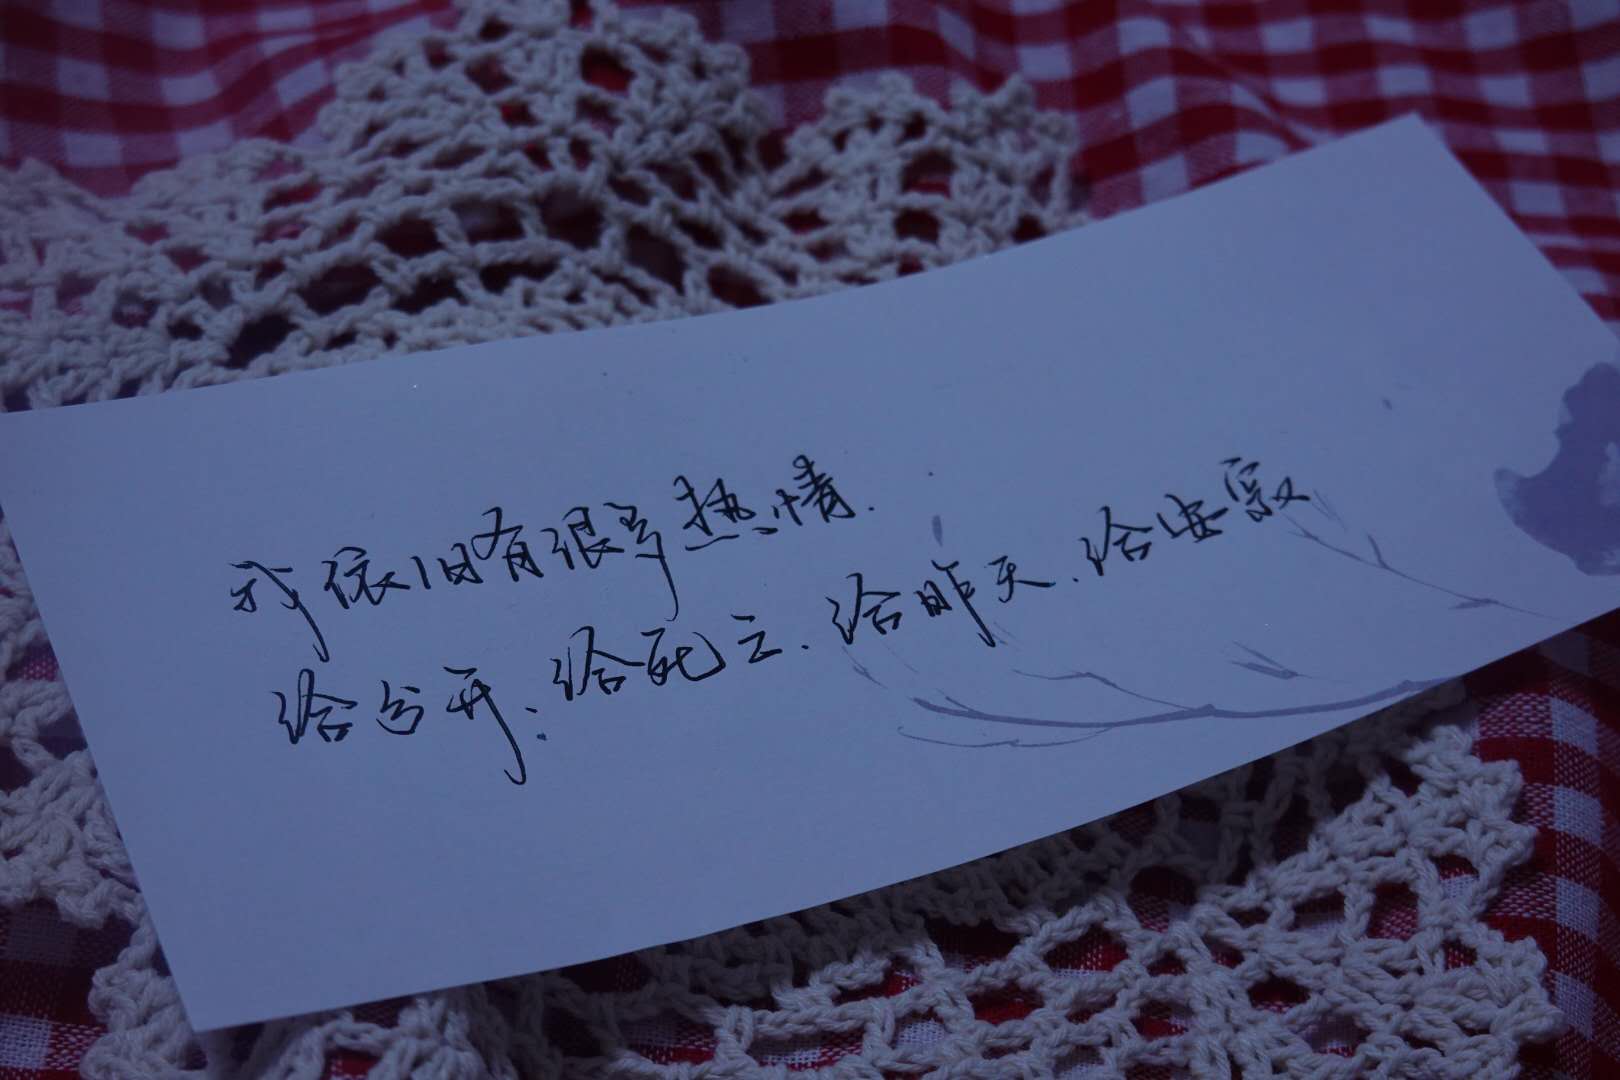 我依旧有很多热情.
给分开、给死亡.给昨天.给安寂